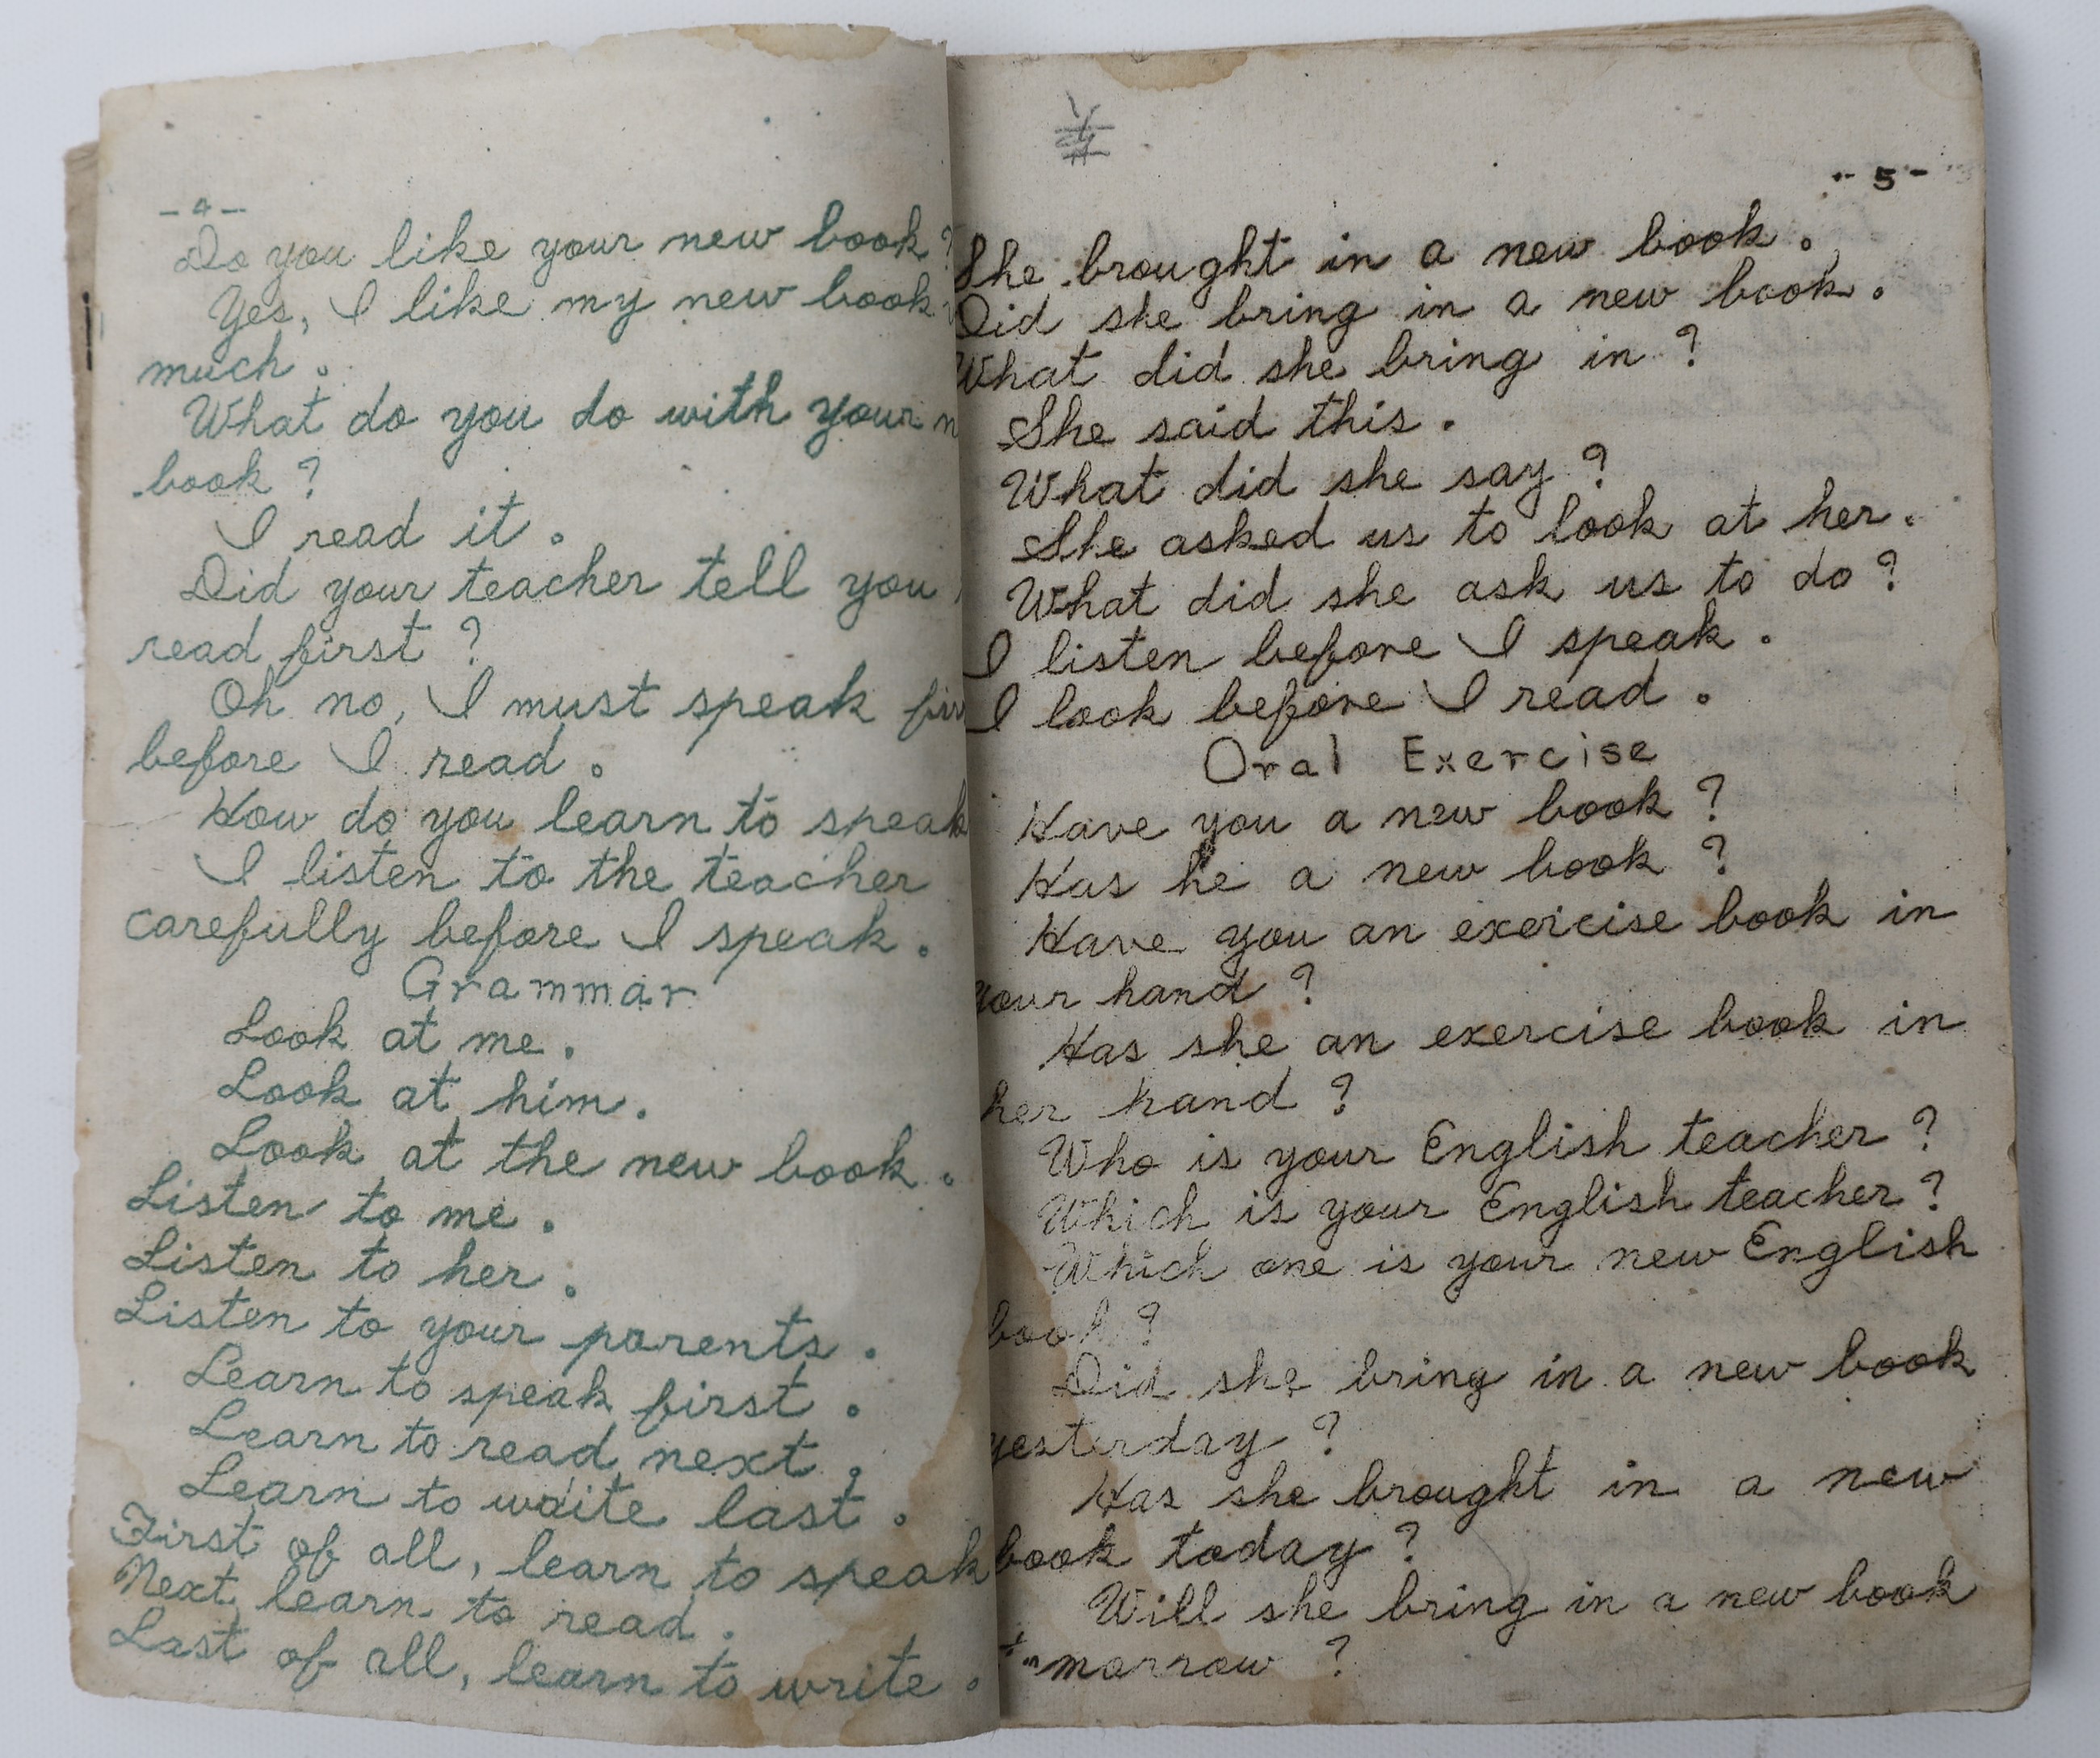 -4-
Do you like your new book?
Yes, I like my new book
much.
What do you do with your
book?
I read it.
Did your teacher tell you
read first?
Oh no, I must speak
before I read.
How do you learn to speak
I listen to the teacher
carefully before I speak.
Grammar
Look at me.
Look at him.
Look at the new book.
Listen to me.
Listen to her.
Listen to your parents.
Learn to speak first.
Learn to read next.
Learn to write last.
First of all, learn to speak
Next, learn to read.
Last of all, learn to write.
-5-
She brought in a new book.
Did she bring in a new book.
What did she bring in?
She said this.
What did she say?
She asked us to look at her.
What did she ask us to do?
I listen before I speak.
I look before I read.
Oral Exercise
Have you a new book?
Has he a new book?
Have you an exercise book in
your hand?
Has she an exercise book in
her hand?
Who is your English teacher?
Which is your English teacher?
Which one is your new English
book?
Did she bring in a new book
yesterday?
Has she brought in a new
book today?
Will she bring in a new book
to-morrow?